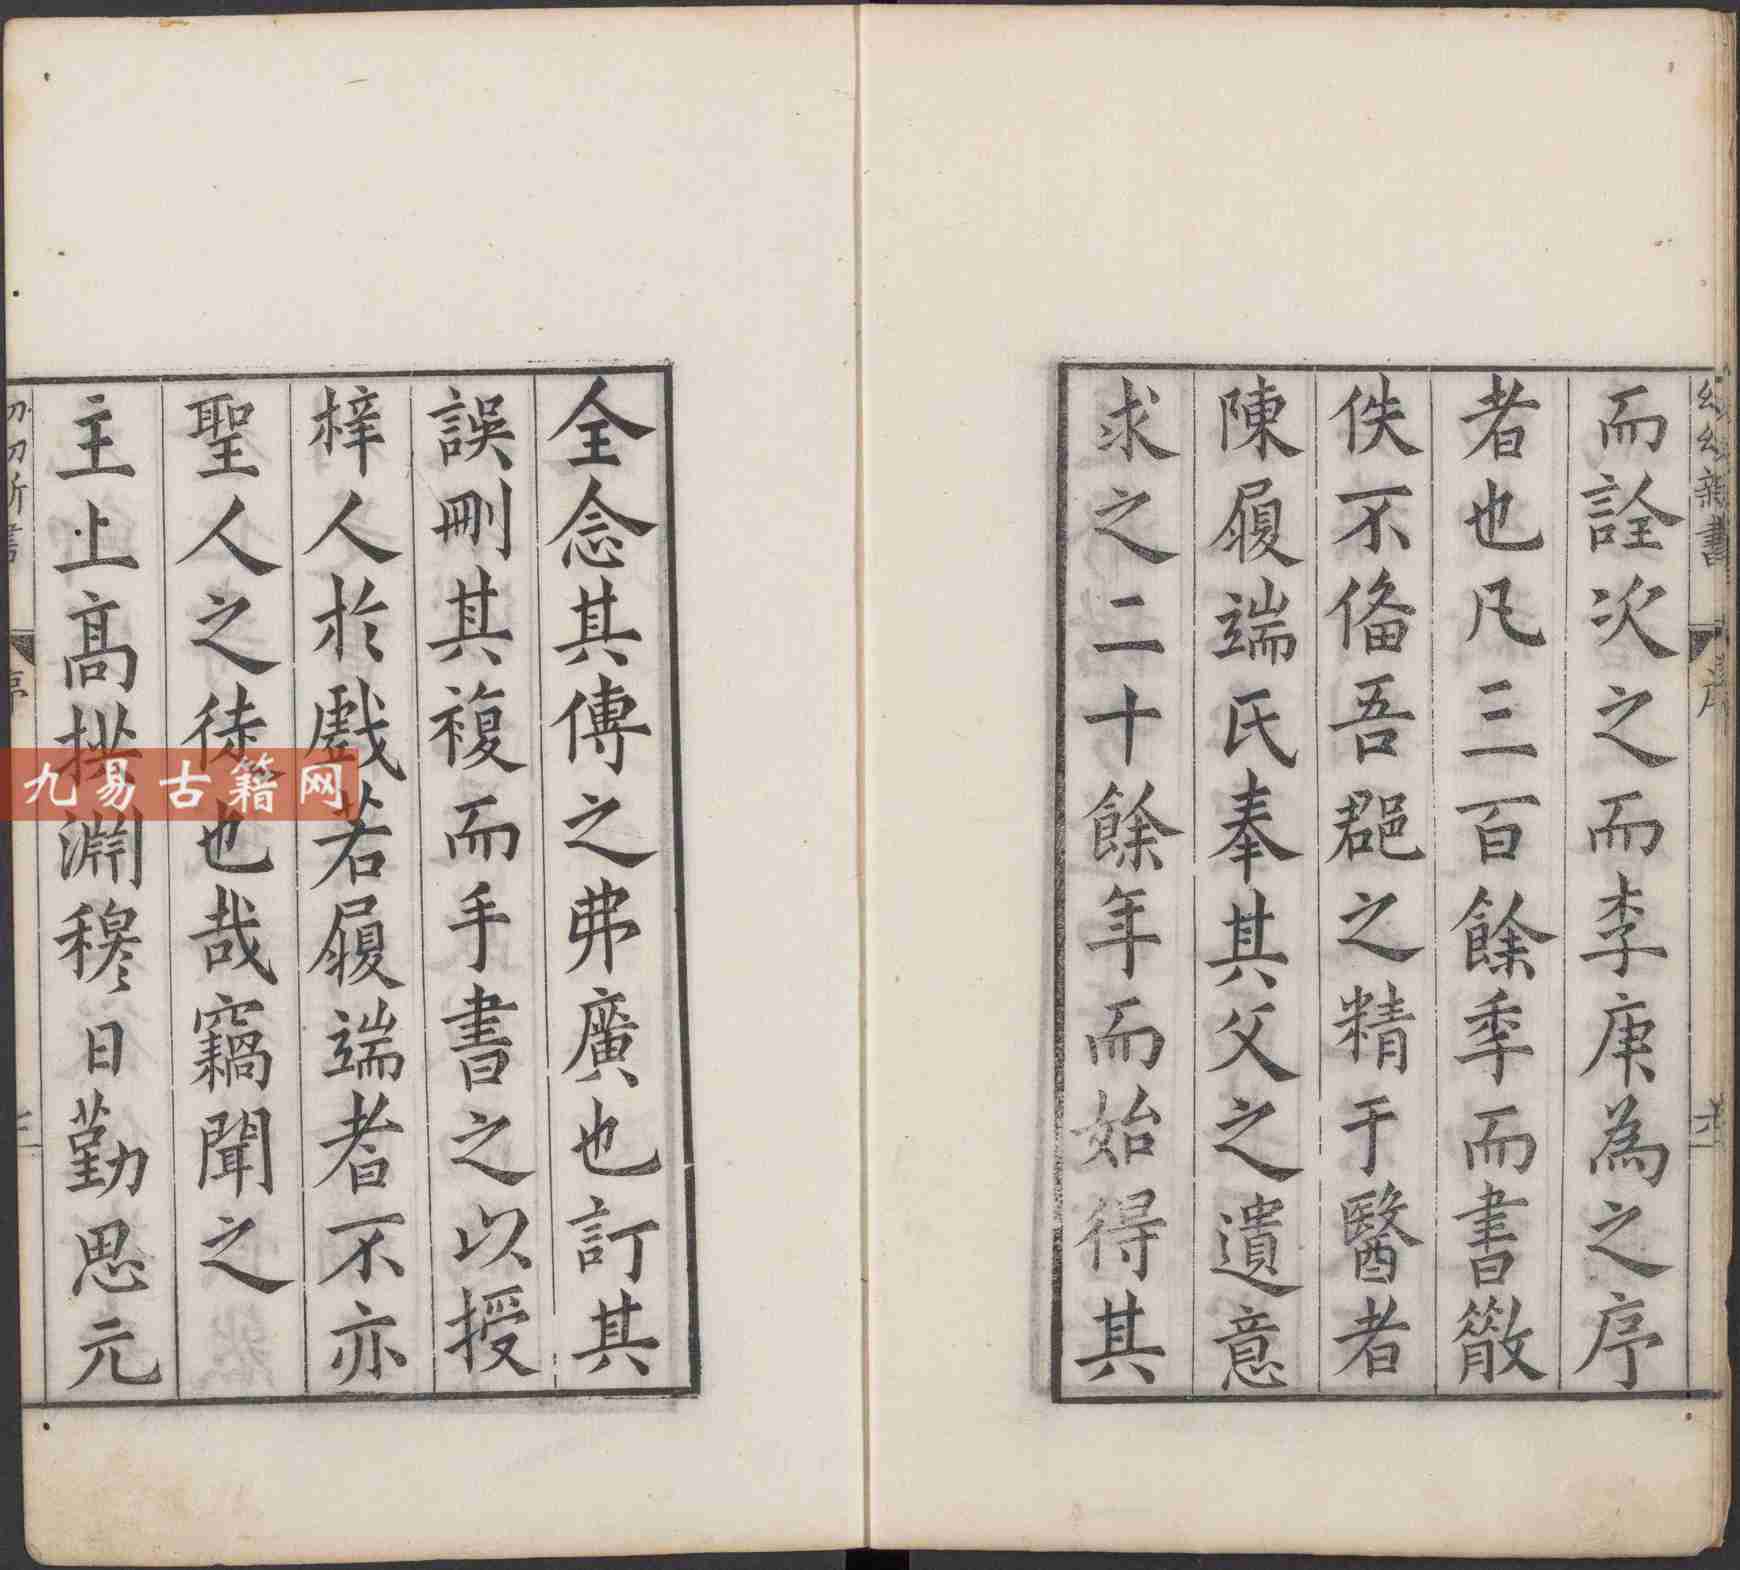 幼幼新書
序
而詮次之而李庚為之序
者也凡三百餘季而書散
佚不俻吾郡之精于醫者
陳履端氏奉其父之遺意
求之二十餘年而始得其
全念其傳之弗廣也訂其
誤刪其複而手書之以授
梓人於戲若履端者不亦
聖人之徒也哉竊聞之
主上高拱淵穆日勤思元
九易古籍网